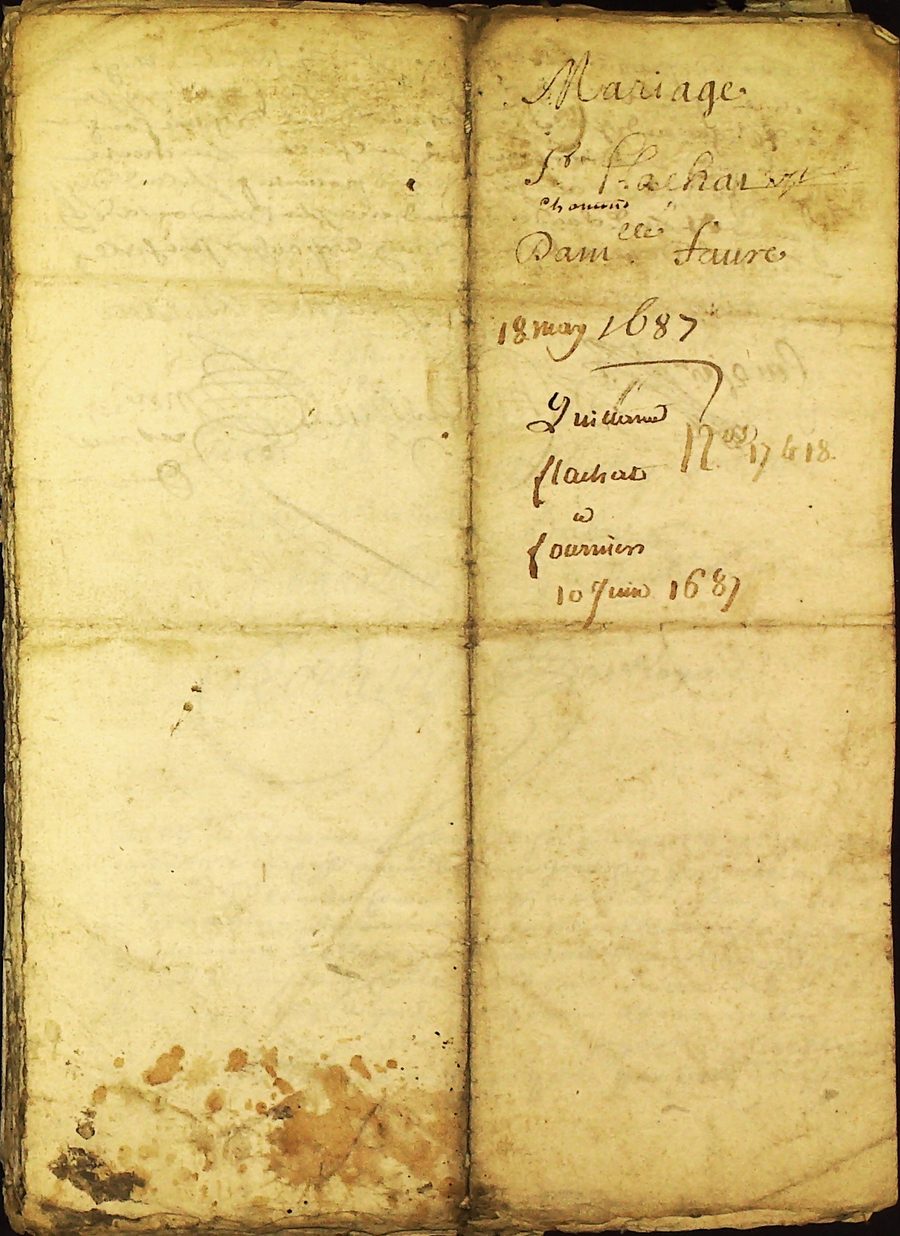 Mariage
Sr Flachat
Dam.elle faure
18 may 1687
Guillaume
flachat
fournier
10 Juin 1687
Nos 17 & 18